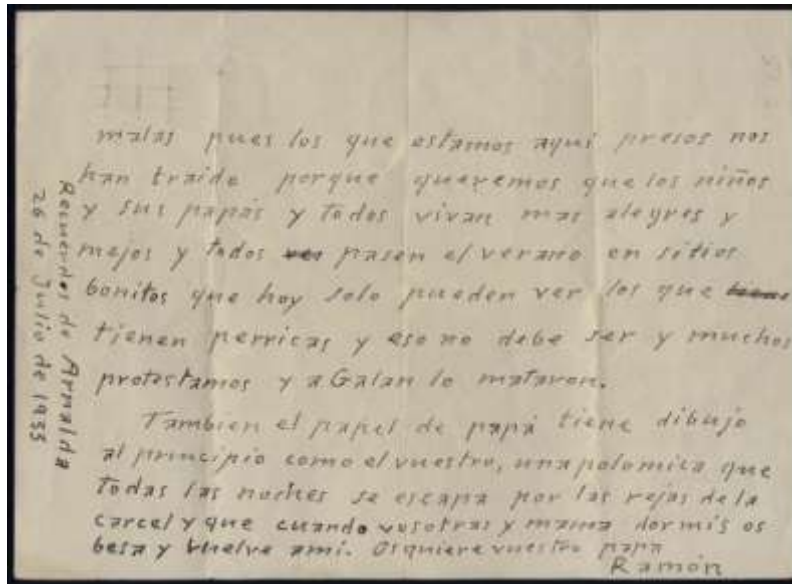 malas pues los que estamos aquí presos nos
han traido porque queremos que los niños
y sus papás y todos vivan mas alegres y
mejos y todos ver pasen el verano en sitios
bonitos que hoy solo pueden ver los que
tienen perricas y eso no debe ser y muchos
protestamos y a Galan lo mataron.
Tambien el papel de papá tiene dibujo
al principio como el vuestro, una polomica que
todas las noches se escapa por las rejas de la
carcel y que cuando vosotras y mama dormis os
besa y vuelve ami. Os quiere vuestro papa
Ramón
Recuerdos de Arnalda
26 de Julio de 1933